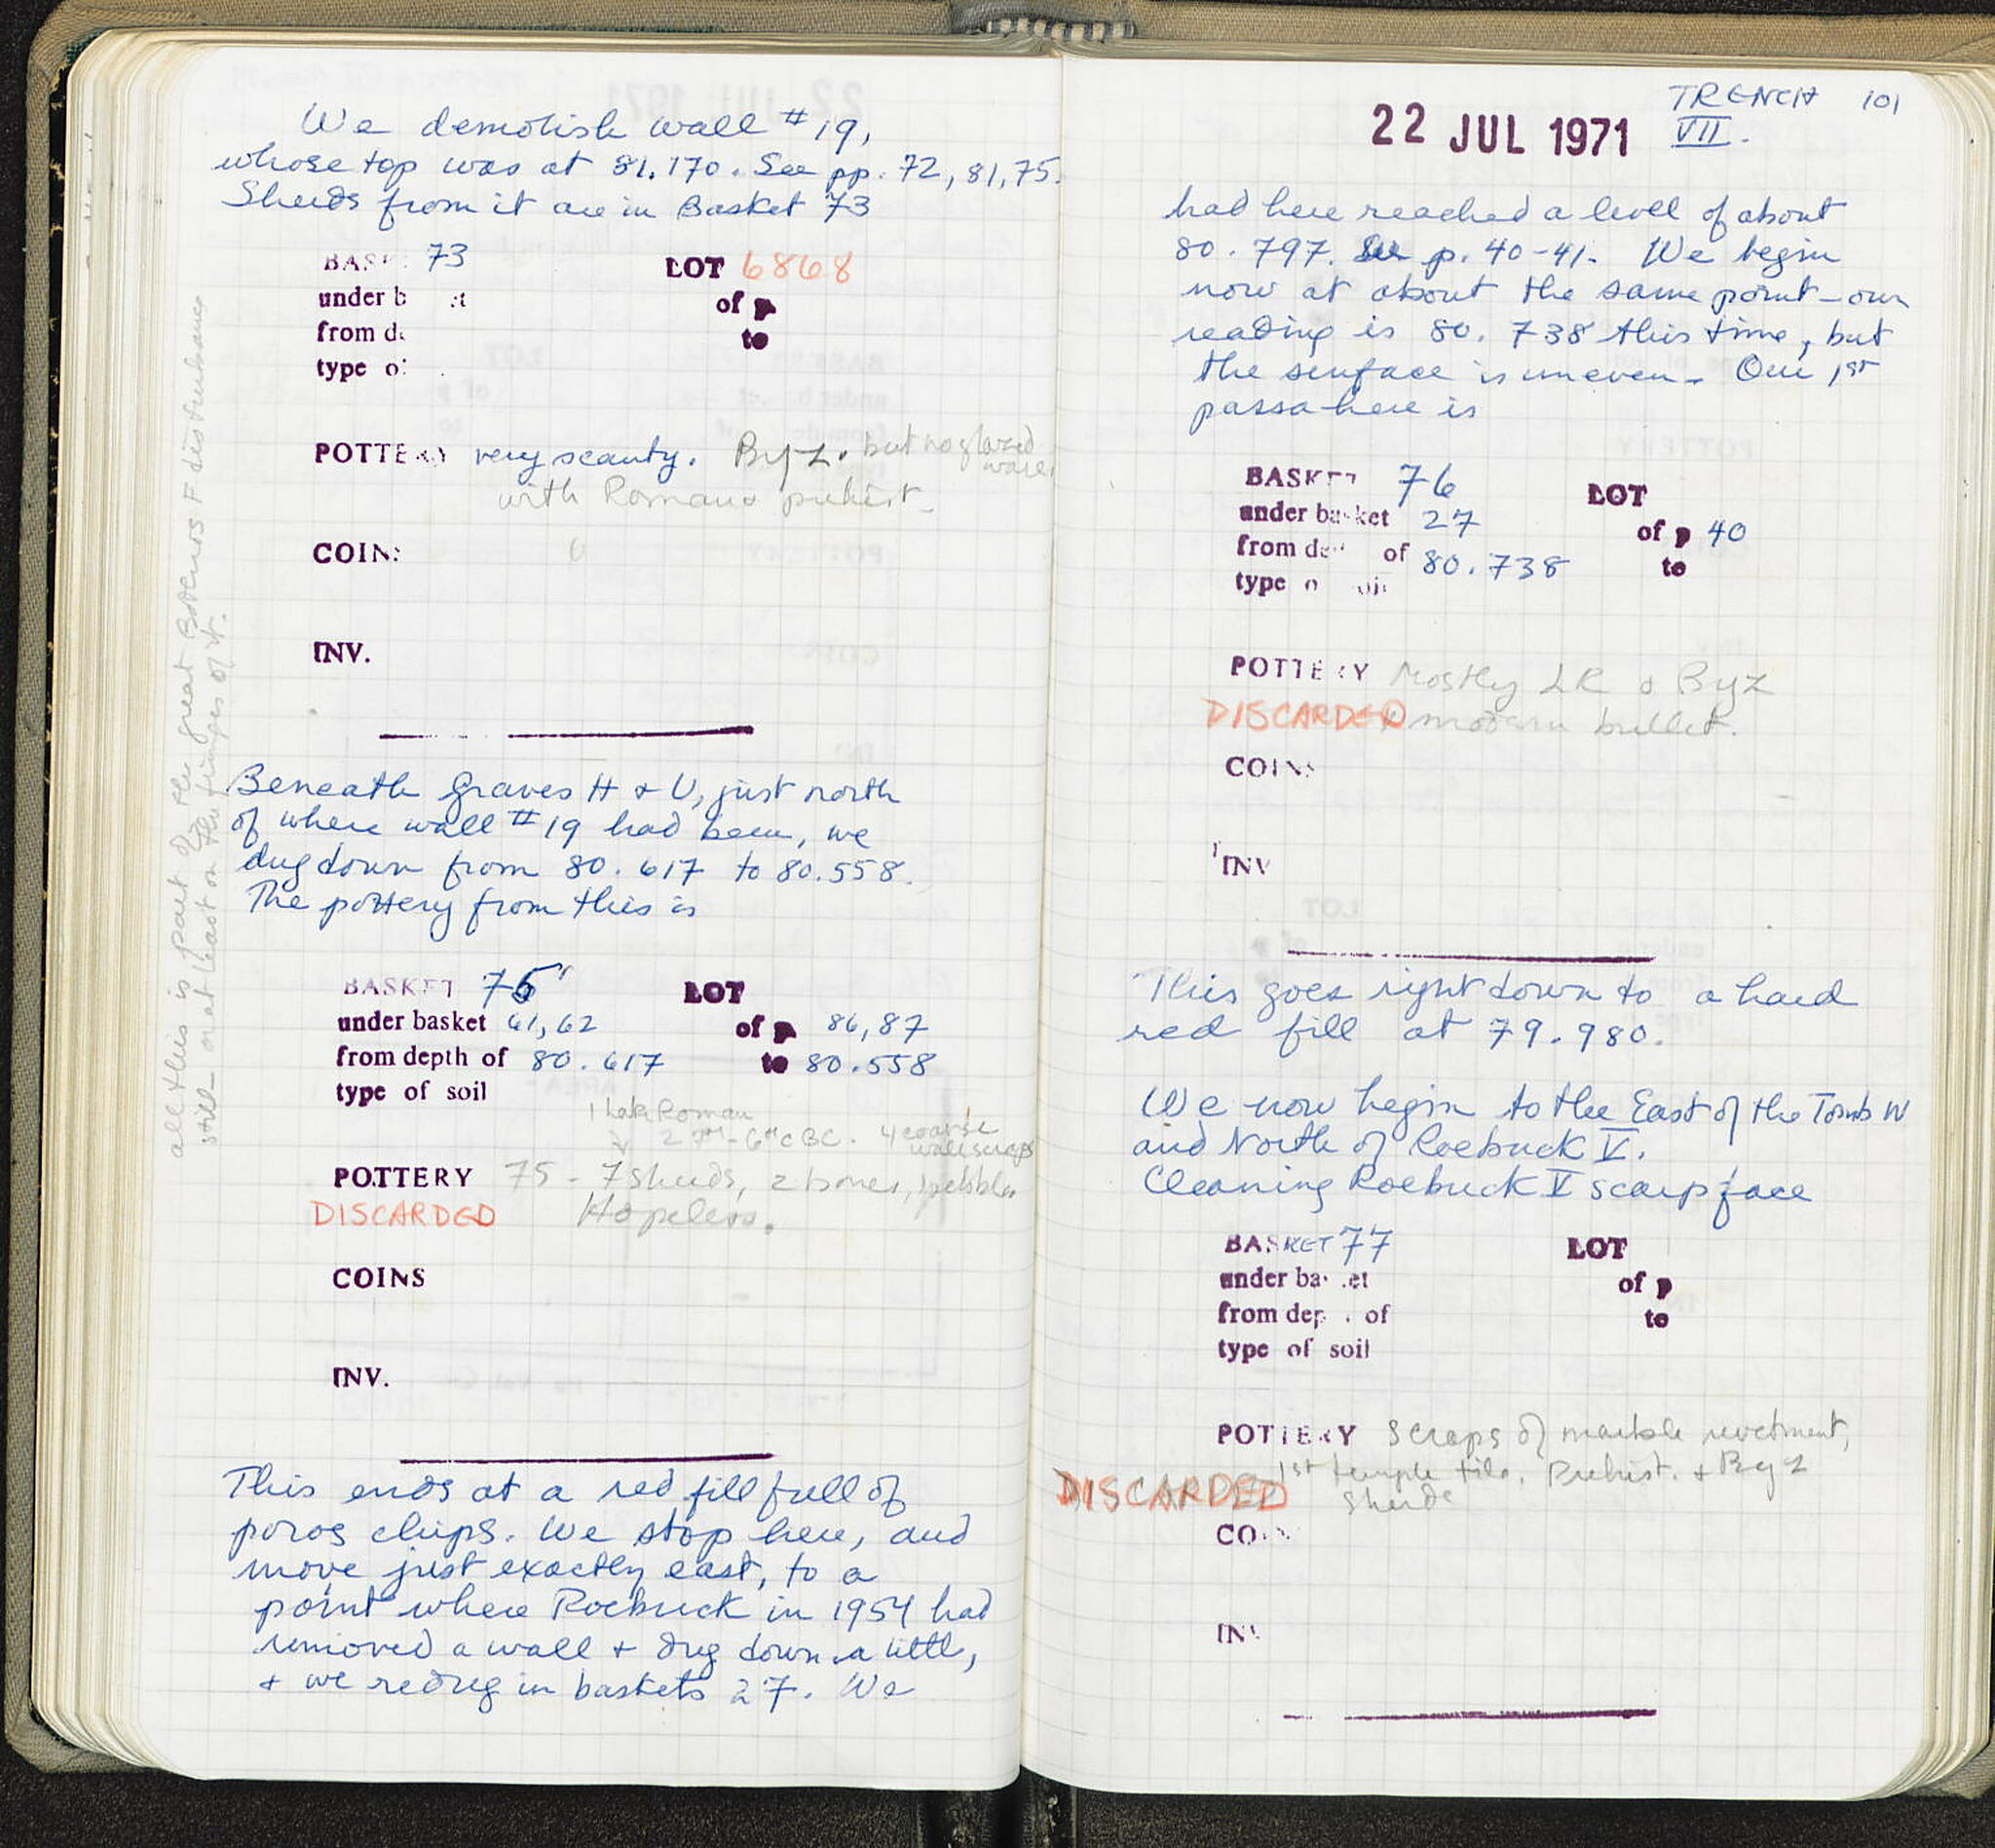 We demolish wall #19,
whose top was at 81.170. See pp. 72, 81, 75.
Sherds from it are in Basket 73
BASK 73 LOT 6868
under b et of p
from de to
type of
POTTERY very scanty. Byz. but no glazed
ware.
with Roman & prehist.
COINS 0
INV.
Beneath Graves H & U, just north
of where wall #19 had been, we
dug down from 80.617 to 80.558.
The pottery from this is
BASKET 75 LOT
under basket 61, 62 of p 86, 87
from depth of 80.617 to 80.558
type of soil
1 Late Roman
2 7th-6th c BC. 4 coarse
ware scraps
POTTERY 75 - 7 sherds, 2 bones, 1 pebble
DISCARDED Hopeless.
COINS
INV.
This ends at a red fill full of
poros chips. We stop here, and
move just exactly east, to a
point where Roebuck in 1954 had
removed a wall + dug down a little,
+ we redug in baskets 27. We
all this is part of the great Bothros F disturbance
still - or at least on the fringes of it.
22 JUL 1971
TRENCH 101
VII.
had here reached a level of about
80.797. See p. 40-41. We begin
now at about the same point - our
reading is 80.738 this time, but
the surface is uneven. Our 1st
passa here is
BASKET 76 LOT
under basket 27 of p 40
from de of 80.738 to
type o oil
POTTERY Mostly LR & Byz
DISCARDED modern bullet.
COINS
INV
This goes right down to a hard
red fill at 79.980.
We now begin to the East of the Tomb W
and North of Roebuck V.
Cleaning Roebuck V scarp face
BASKET 77 LOT
under ba et of p
from dep of to
type of soil
POTTERY Scraps of marble revetment,
1st temple tile, Prehist. + Byz
DISCARDED sherds
COIN
INV